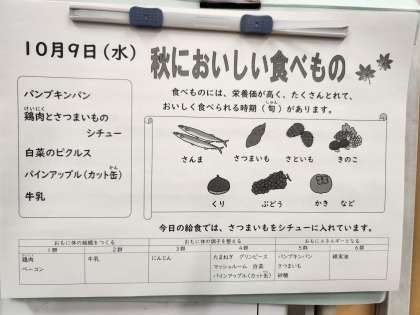 10月9日(水)
秋においしい食べもの
パンプキンパン
鶏肉とさつまいもの
けいにく
シチュー
白菜のピクルス
パインアップル(カット缶)
かん
牛乳
食べものには、栄養価が高く、たくさんとれて、
おいしく食べられる時期(旬)があります。
しゅん
さんま さつまいも さといも きのこ
くり ぶどう かき など
今日の給食では、さつまいもをシチューに入れています。
おもに体の組織をつくる おもに体の調子を整える おもにエネルギーとなる
1群 2群 3群 4群 5群 6群
鶏肉 牛乳 にんじん たまねぎ グリンピース パンプキンパン 綿実油
ベーコン マッシュルーム 白菜 さつまいも
パインアップル(カット缶) 砂糖